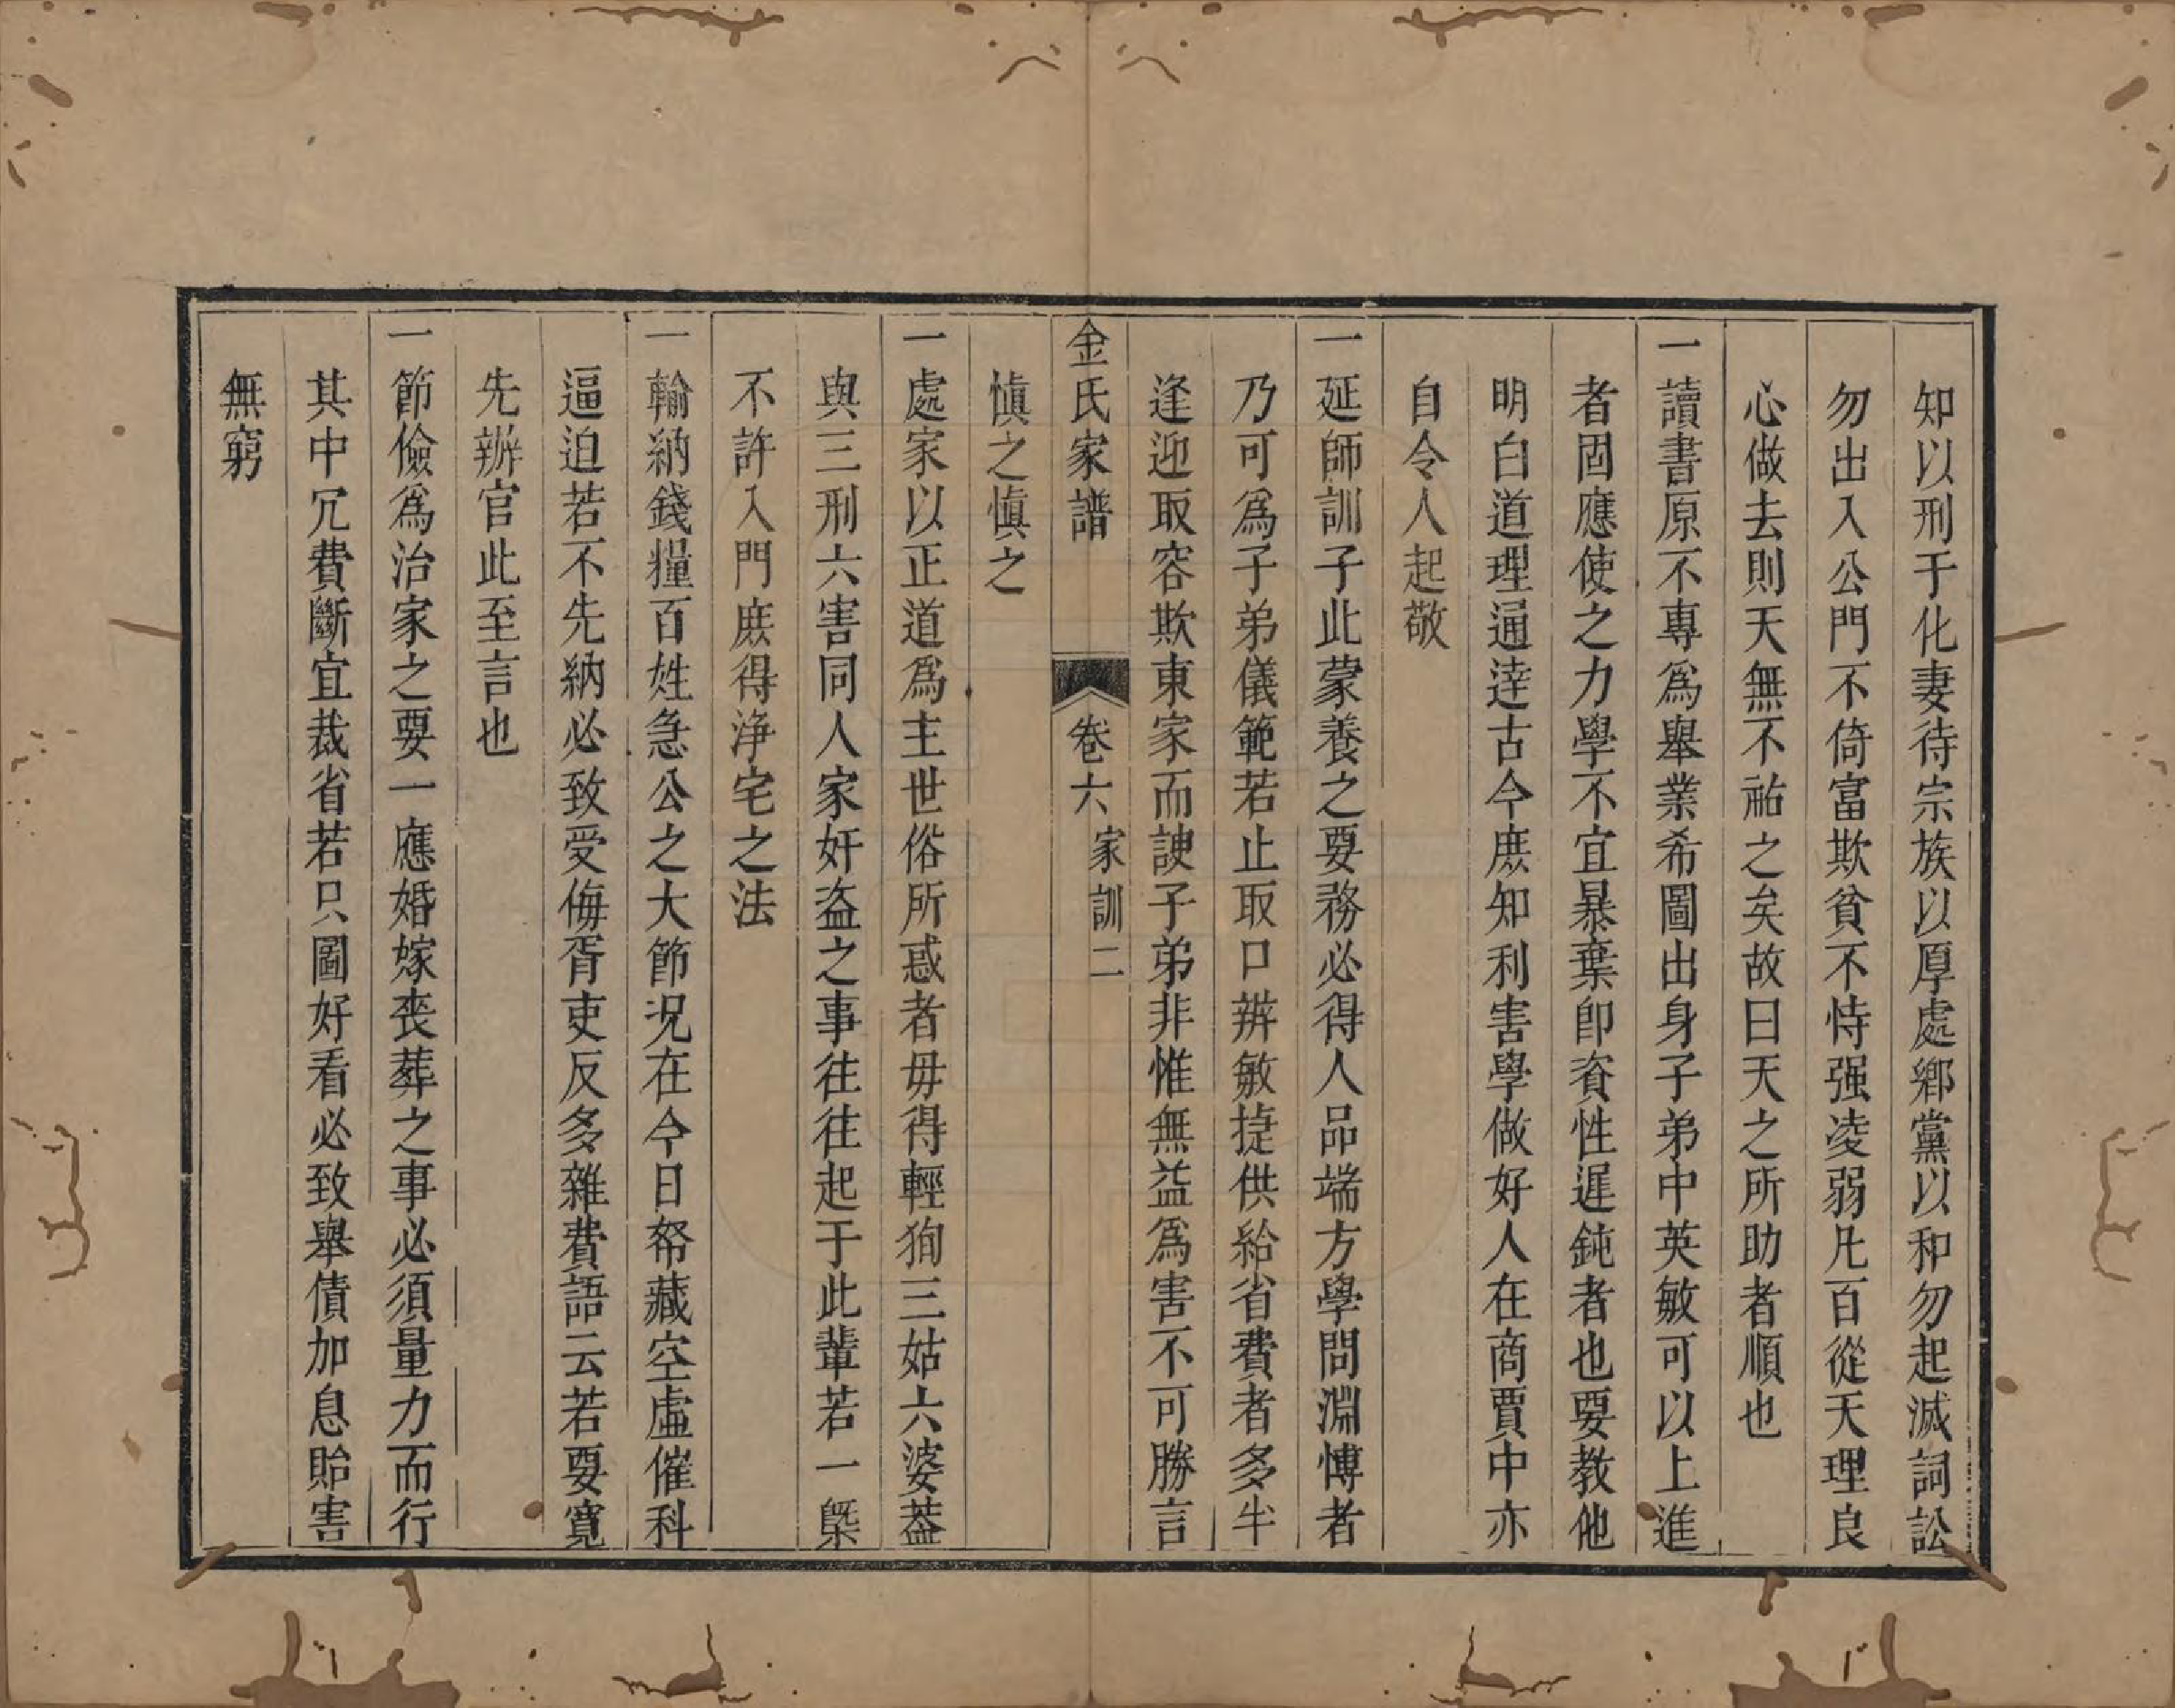 知以刑于化妻待宗族以厚處鄉黨以和勿起滅詞訟
勿出入公門不倚富欺貧不恃强凌弱凢百從天理良
心做去則天無不祐之矣故曰天之所助者順也
一讀書原不專爲舉業希圖出身子弟中英敏可以上進
者固應使之力學不宜暴棄卽資性遲鈍者也要教他
明白道理通達古今庶知利害學做好人在商賈中亦
自令人起敬
一延師訓子此蒙養之要務必得人品端方學問淵博者
乃可爲子弟儀範若止取口辨敏捷供給省費者多半
逢迎取容欺東家而諛子弟非惟無益爲害不可勝言
金氏家譜 卷六 家訓二
慎之慎之
一處家以正道爲主世俗所惑者毋得輕狥三姑六婆葢
與三刑六害同人家奸盗之事往往起于此輩若一槩
不許入門庶得浄宅之法
一輸納錢糧百姓急公之大節况在今日帑藏空虛催科
逼迫若不先納必致受侮胥吏反多雜費語云若要寬
先辦官此至言也
一節儉爲治家之要一應婚嫁喪葬之事必須量力而行
其中冗費斷宜裁省若只圖好看必致舉債加息貽害
無窮